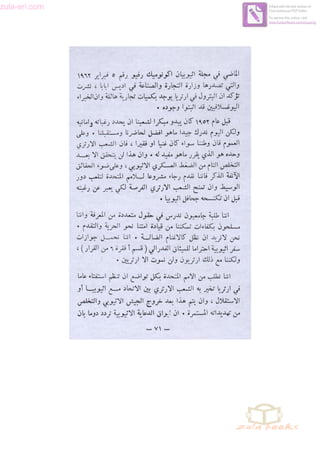 zula-eri.com
Edited with the trial version of
Foxit Advanced PDF Editor
To remove this notice, visit:
www.foxitsoftware.com/shopping
الماضي في مجلة اثيوبيان اكونوميك رفيو رقم ٥ فبراير ١٩٦٢
والتي تصدرها وزارة التجارة والصناعة في اديس ابابا ، نشرت
تؤكد ان البترول في ارتريا يوجد بكميات تجارية هائلة وان الخبراء
اليوغسلافيين قد اثبتوا وجوده •
قبل عام ١٩٥٢ كان يبدو مبكرا لشعبنا ان يحدد رغباته وامانيه
ولكن اليوم ندرك جيدا ماهو افضل لحاضرنا ومستقبلنا • وعلى
العموم فان وطننا سواء كان غنيا او فقيرا ، فان الشعب الارتري
وحده هو الذي يقرر ماهو مفيد له • وان هذا لن يتحقق الا بعد
التخلص التام من الضغط العسكري الاثيوبي ، وعلى ضوء الحقائق
الآنفة الذكر فاننا نقدم رجاء مشروعا للامم المتحدة لتلعب دور
الوسيط وان تمنح الشعب الارتري الفرصة لكي يعبر عن رغبته
قبل ان تكتسحه جحافل اثيوبيا •
اننا طلبة جامعيون ندرس في حقول متعددة من المعرفة واننا
مسلحون بكفاءات تمكننا من قيادة امتنا نحو الحرية والتقدم •
نحن لانريد ان نظل كالاغنام الضالة • اننا نحمل جوازات
سفر اثيوبية احتراما للميثاق الفدرالي ( قسم أ فقرة ٦ من القرار ) ،
ولكننا مع ذلك ارتريون ولن نموت الا ارتريين •
اننا نطلب من الامم المتحدة بكل تواضع ان تنظم استفتاء عاما
في ارتريا تخير به الشعب الارتري بين الاتحاد مع اثيوبيا أو
الاستقلال ، وان يتم هذا بعد خروج الجيش الاثيوبي والتخلص
من تهديداته المستمرة • ان ابواق الدعاية الاثيوبية تردد دوما بان
— ٧١ —
zula books